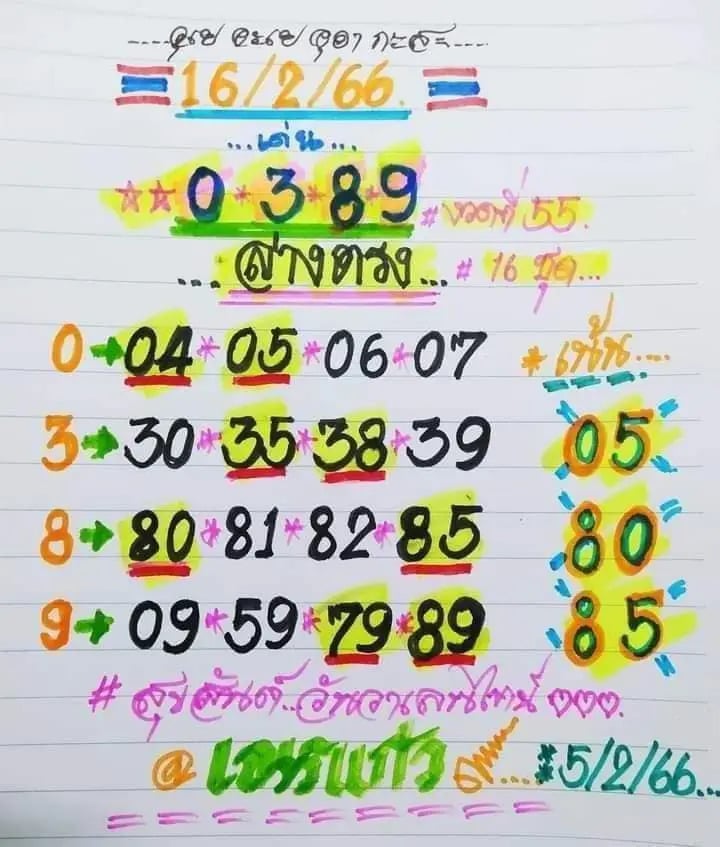 16/2/66.
...เด่น...
0*3*8*9 # งวดที่ 55.
....ล่างตรง... # 16 ชุด...
0 → 04*05*06*07 * เน้น....
3 → 30*35*38*39 05
8 → 80*81*82*85 80
9 → 09*59*79*89 85
# สุขสันต์..วันวาเลนไทน์ ♡♡♡.
@ เณรแก้ว .... *5/2/66...